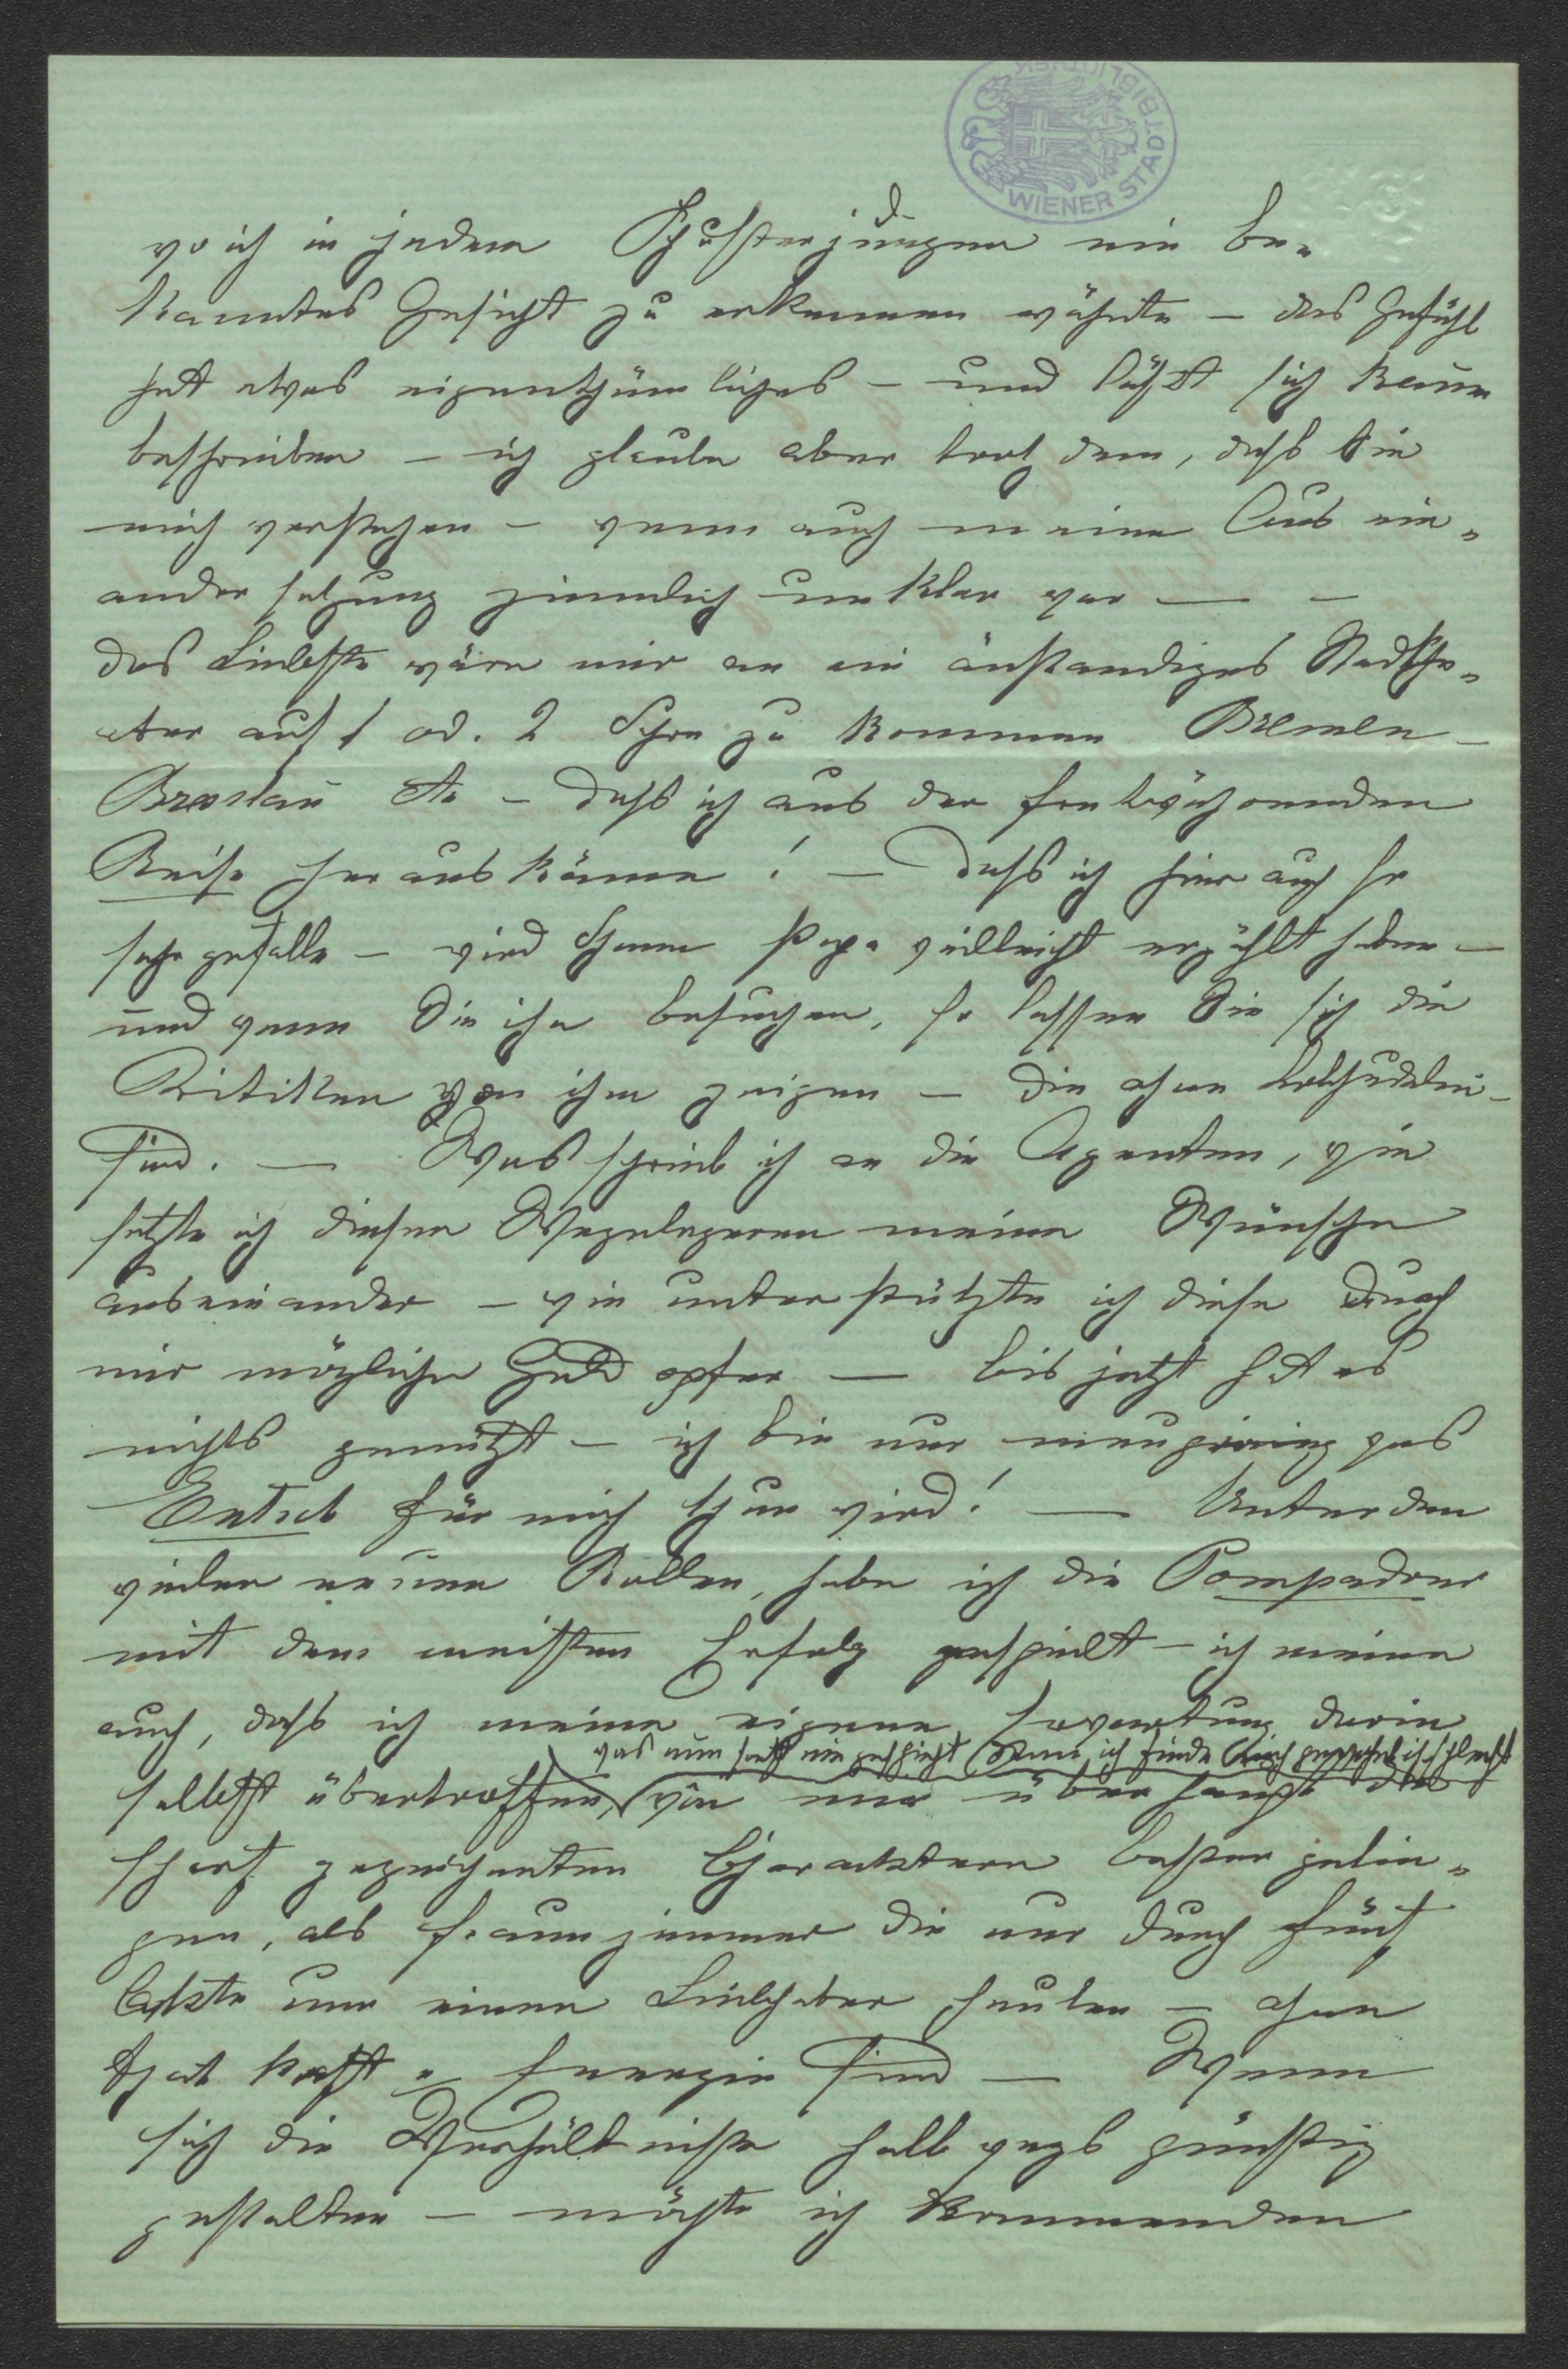 WIENER STADTBIBLIOTHEK
wo ich in jedem Schusterjungen ein be„
kanntes Gesicht zu erkennen wähnte – das Gefühl
hat etwas eigenthümliches – und läßt sich kaum
beschreiben – ich glaube aber trotz dem, daß Sie
mich verstehen – wenn auch meine Aus ein„
ander setzung ziemlich unklar war — –
das Liebste wäre mir an ein anständiges Stadtthe„
ater auf 1 od. 2 Jahre zu kommen Bremen –
Breslau etc – daß ich aus der fortwährenden
Reise heraus käme! – daß ich hier auch so
sehr gefalle – wird Ihnen Papa vielleicht erzählt haben –
und wenn Sie ihn besuchen, so lassen Sie sich die
Kritiken von ihm zeigen – die ohne Lobhudelei –
sind. — Was schrieb ich an die Agenten, wie
setzte ich diesen Wegelagerern meine Wünsche
auseinander – wie unterstützte ich diese durch
mir mögliche Geld opfer — bis jetzt hat es
nichts genützt – ich bin nur neugierig was
Entsch für mich thun wird! — Unter den
vielen neuen Rollen, habe ich die Pompadour
mit dem meisten Erfolg gespielt – ich meine
auch, daß ich meine eigene Erwartung darin
was nun sonst nie geschieht denn ich finde mich schlecht
selbst übertroffen, wie mir überhaupt die
scharf gezeichneten Charaktere besser gelin„
gen, als Frauenzimmer die nur durch fünf
Akte um einen Liebhaber heulen – ohne
That kraft u Energie sind — Wenn
sich die Verhältnisse halbwegs günstig
gestalten – möchte ich kommenden